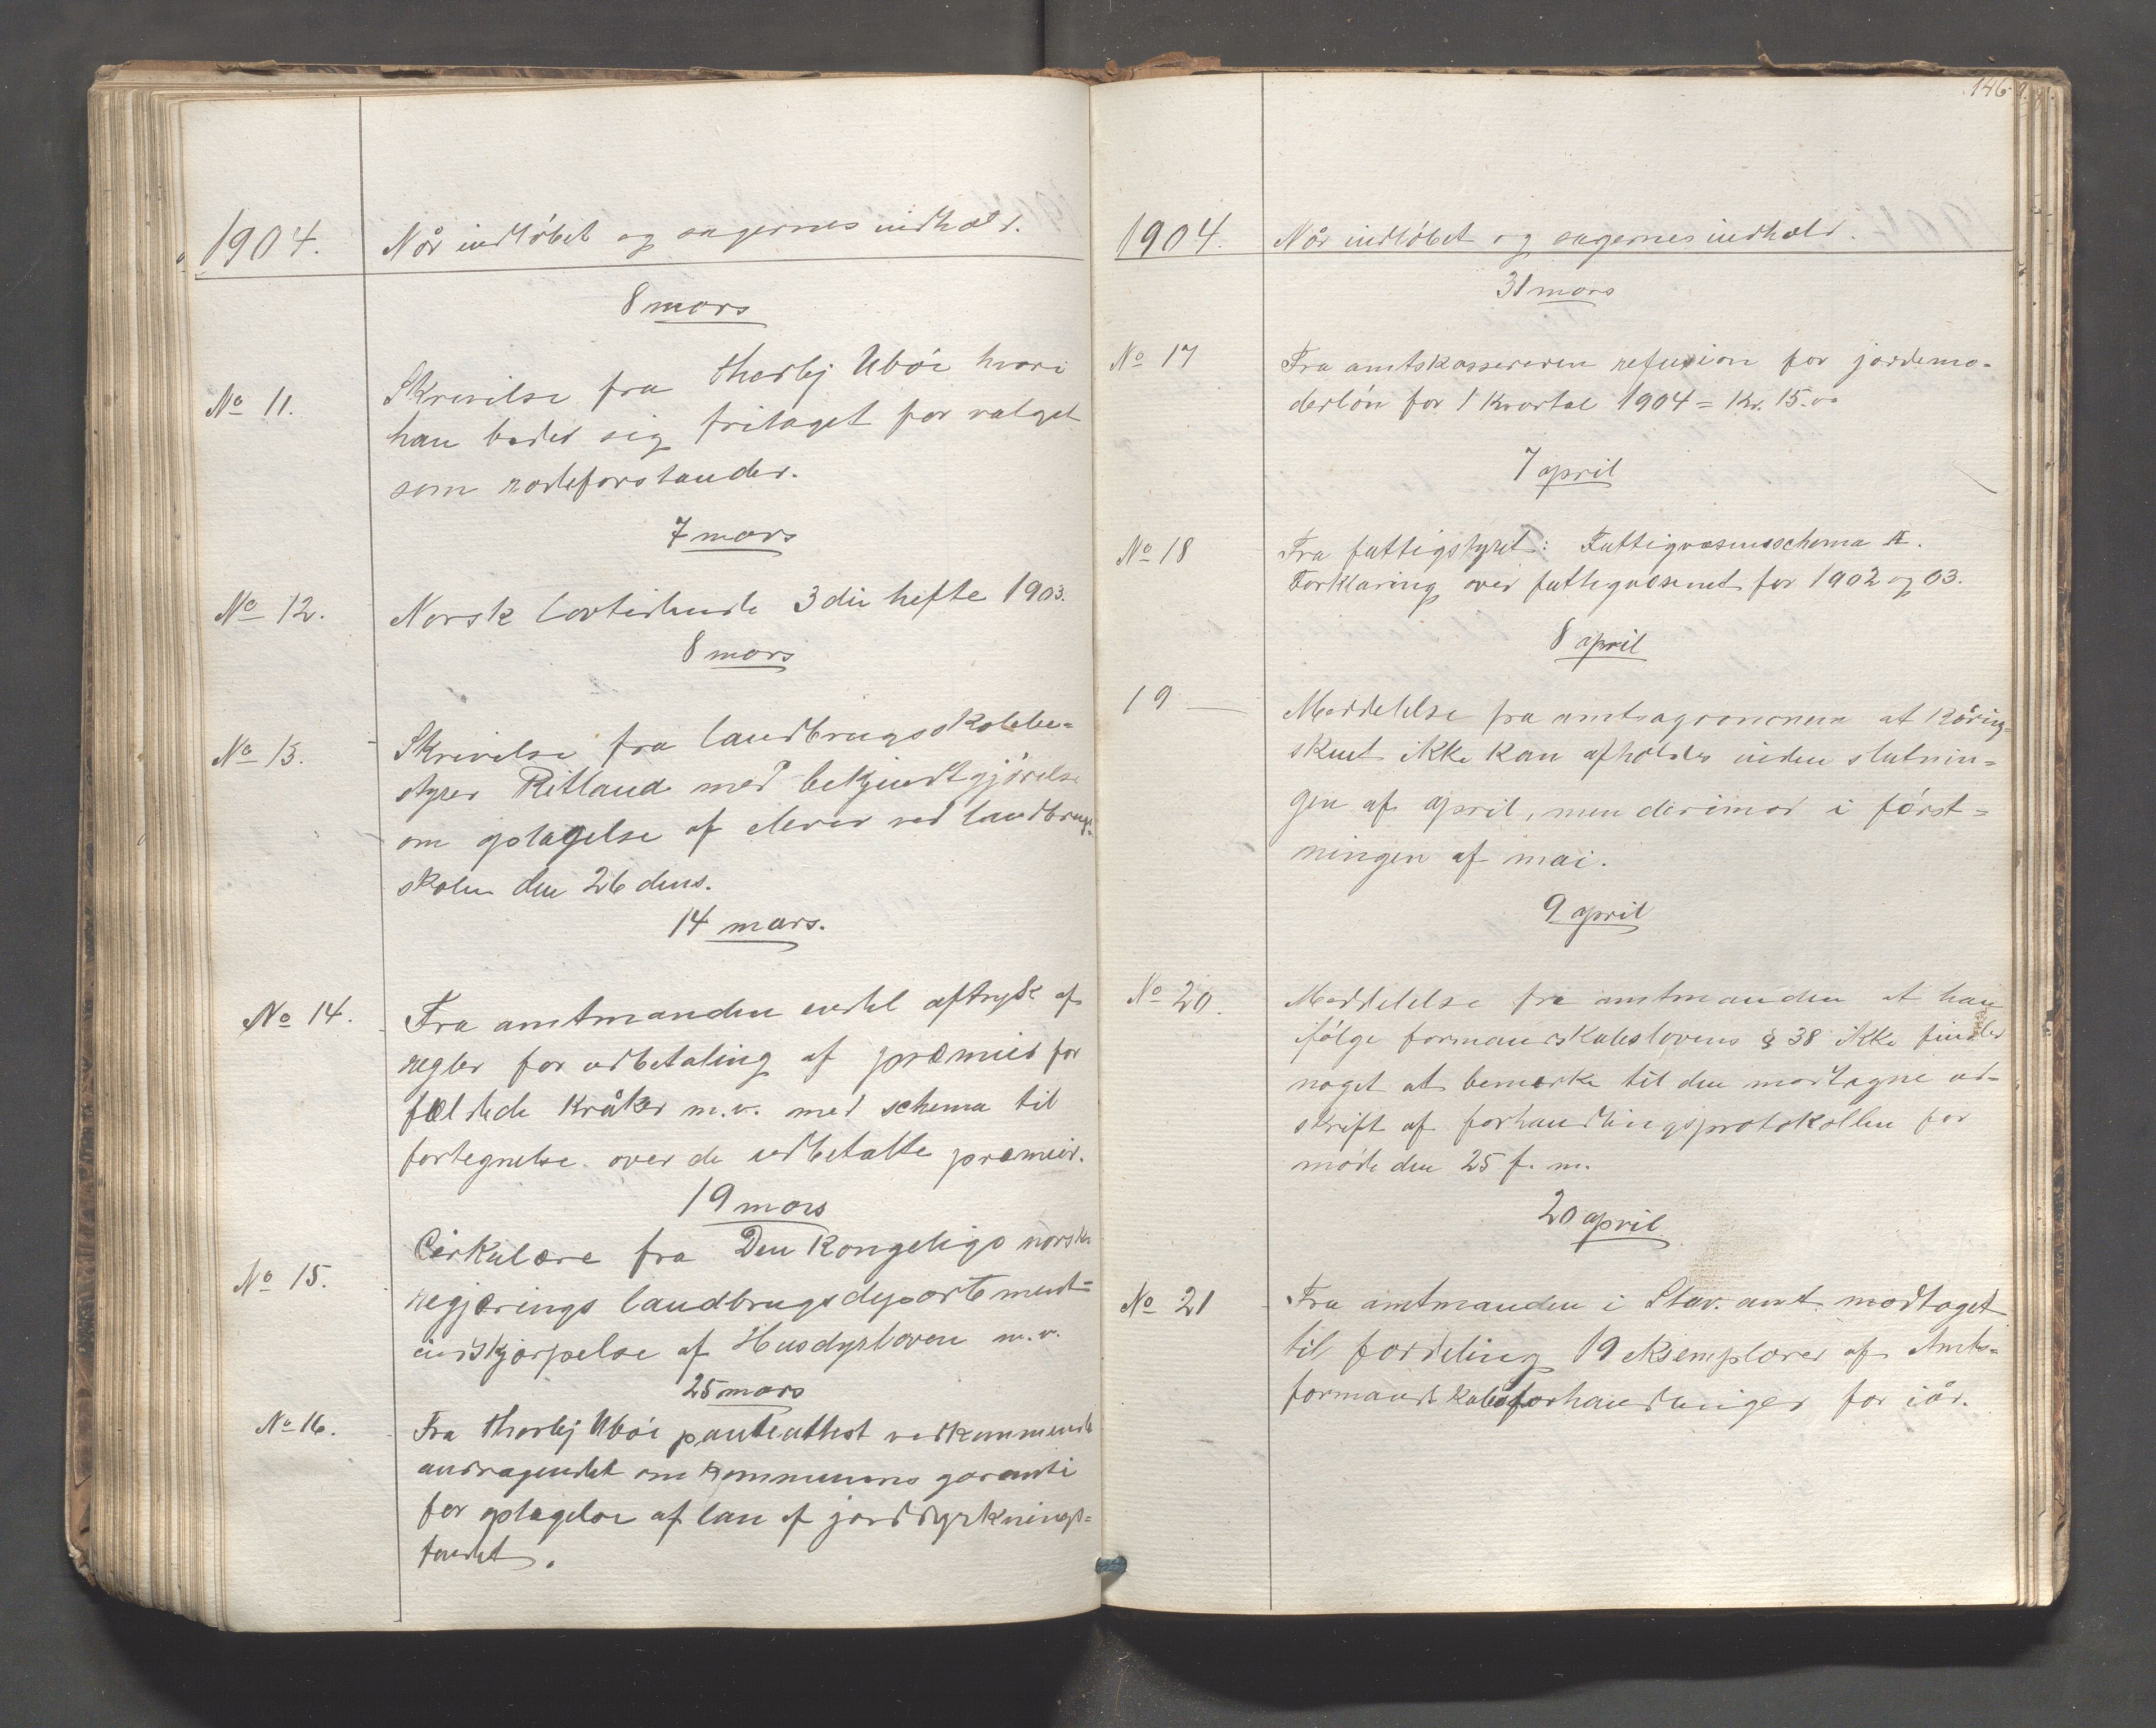 1904. Når indløbet og sagernes indhold.
8 mars
No 11. Skrivelse fra Thorbj Ubøe hvori
han beder sig fritaget for valget
som rodeforstander.
7 mars
No 12. Norsk Lovtidende 3die hefte 1903.
8 mars
No 13. Skrivelse fra landbrugsskolebe=
styrer Ritland med bekjendtgjørelse
om optagelse af elever ved landbrugs=
skolen den 26 dens.
14 mars.
No 14. Fra amtmanden endel aftryk af
regler for udbetaling af præmier for
fældede kråker m.v. med schema til
fortegnelse over de udbetalte præmier.
19 mars
No 15. Cirkulære fra Den kongelige norske
regjerings landbrugsdepartement=
indskjærpelse af Husdyrloven m.v.
25 mars
No 16. Fra Thorbj Ubøe panteattest vedkommende
andragendet om kommunens garanti
for optagelse af lån af jorddyrknings=
fondet.
146
1904. Når indløbet og sagernes indhold.
31 mars
No 17 Fra amtskassereren refusion for jordemo=
derløn for 1 kvartal 1904 = Kr. 15.00
7 april
No 18 Fra fattigstyret: Fattigvæsensschema II.
Forklaring over fattigvæsenet for 1902 og 03.
8 april
19 — Meddelelse fra amtsagronomen at kåring=
skuet ikke kan afholdes inden slutnin=
gen af april, men derimod i først=
ningen af mai.
9 april
No 20. Meddelelse fra amtmanden at han
ifølge formandskabslovens § 38 ikke finder
noget at bemærke til den modtagne ud=
skrift af forhandlingsprotokollen for
møde den 25 f. m.
20 april
No 21 Fra amtmanden i Stav. amt modtaget
til fordeling 19 eksemplarer af Amts=
formandskabsforhandlinger for iår.